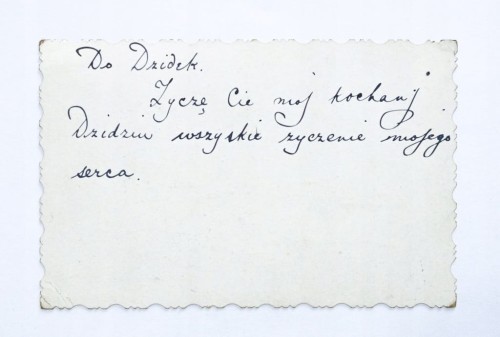 Do Dzidek.
Życzę Cie mój kochanÿ
Dzidziu wszyskie zyczenie mojego
serca.